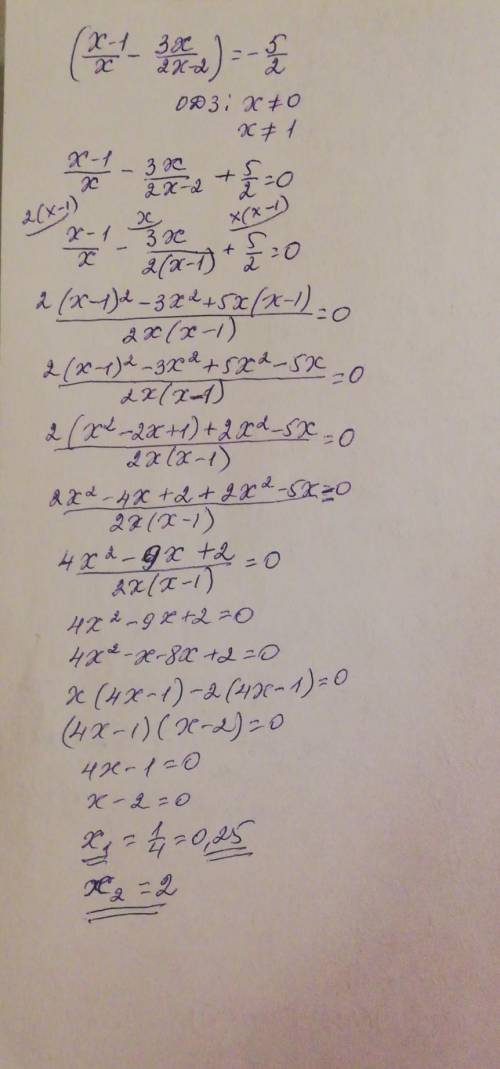 (x-1/x - 3x/2x-2) = -5/2
ОДЗ: x≠0
x≠1
x-1/x - 3x/2x-2 + 5/2 = 0
2(x-1) x x(x-1)
x-1/x - 3x/2(x-1) + 5/2 = 0
2(x-1)²-3x²+5x(x-1)/2x(x-1) = 0
2(x-1)²-3x²+5x²-5x/2x(x-1) = 0
2(x²-2x+1)+2x²-5x/2x(x-1) = 0
2x²-4x+2+2x²-5x/2x(x-1) = 0
4x²-9x+2/2x(x-1) = 0
4x²-9x+2=0
4x²-x-8x+2=0
x(4x-1)-2(4x-1)=0
(4x-1)(x-2)=0
4x-1=0
x-2=0
x₁ = 1/4 = 0,25
x₂ = 2